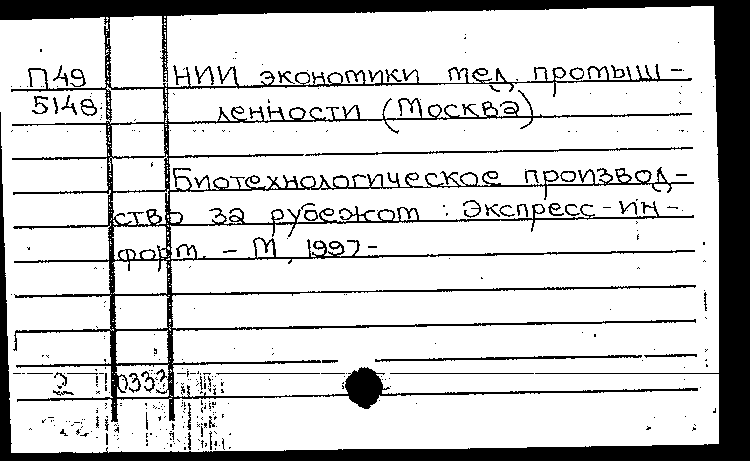 П49 НИИ экономики мед. промыш-
5148 ленности (Москва).
Биотехнологическое производ-
ство за рубежом : Экспресс-ин-
форм. - М, 1997-
2 0333